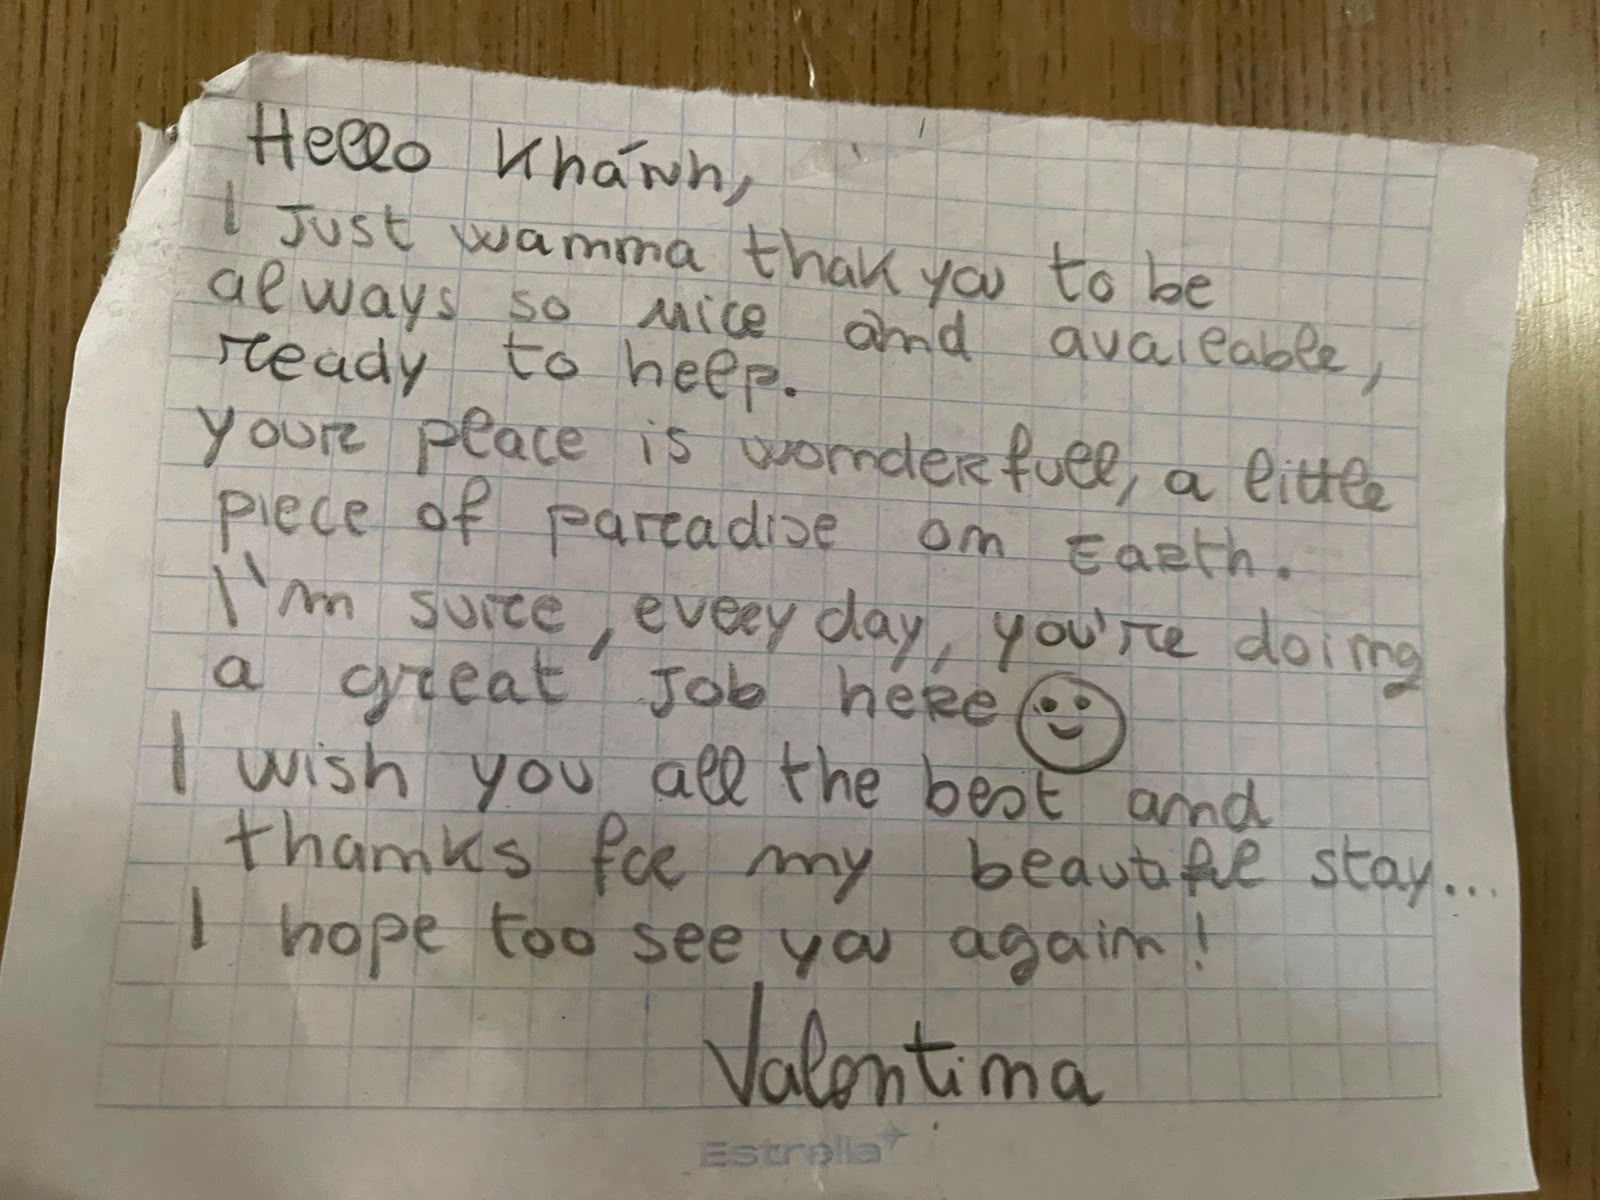 Hello Khánh,
I Just wanna thak you to be
always so nice and avaleable,
ready to help.
your place is wonderfull, a little
piece of paradise on Earth.
I'm sure, every day, you're doing
a great Job here
I wish you all the best and
thanks for my beautiful stay...
I hope too see you again!
Valentina
Estrella